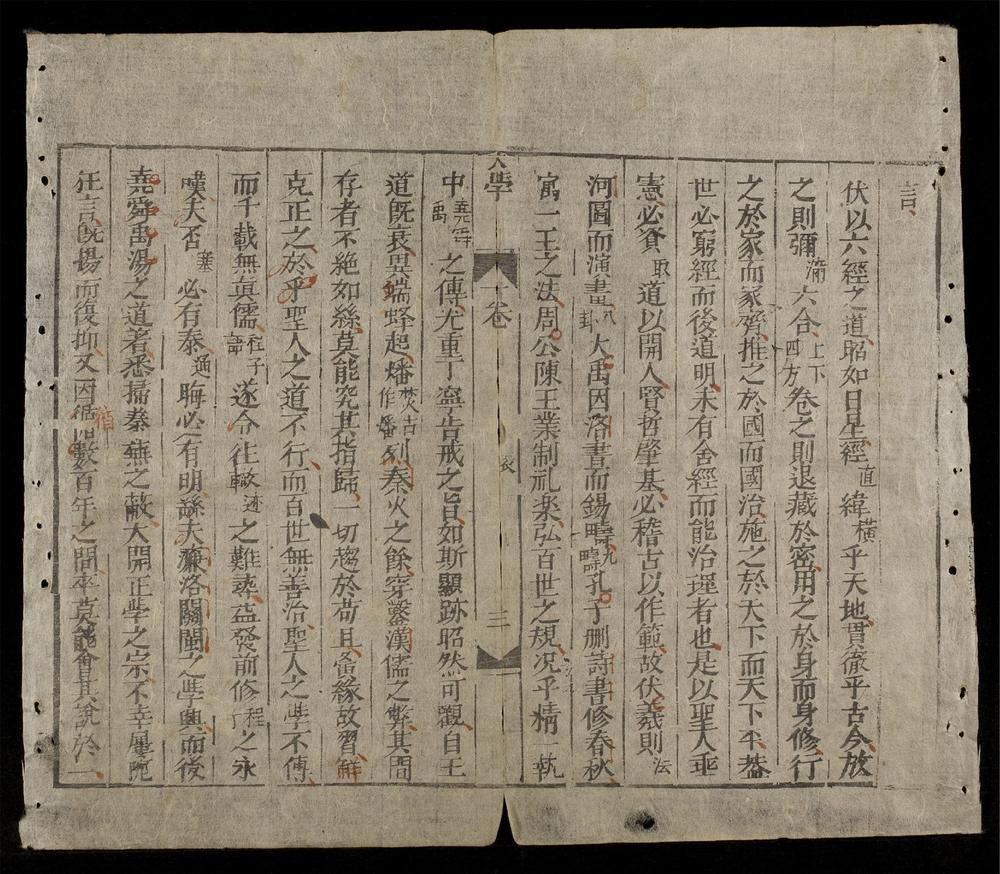 言
伏以六經之道昭如日星經直緯橫乎天地貫徹乎古今放
之則彌滿六合上下四方卷之則退藏於密用之於身而身修行
之於家而家齊推之於國而國治施之於天下而天下平盖
世必窮經而後道明未有舍經而能治理者也是以聖人垂
憲必資取道以開人賢哲肇基必稽古以作範故伏羲則法
河圖而演畫八卦大禹因洛書而錫疇九疇孔子删詩書修春秋
寓一王之法周公陳王業制礼楽弘百世之規况乎精一執
大學 卷 三
中堯舜禹之傳尤重丁寧告戒之旨如斯顯跡昭然可觀自王
道旣衰異端蜂起燔焚也作燔列秦火之餘穿鑿漢儒之弊其間
存者不絶如絲莫能究其指歸一切趨於苟且畨緣故習鮮
克正之於乎聖人之道不行而百世無善治聖人之學不傳
而千載無真儒程子語遂令往轍迹之難尋益發前修程丁之永
嘆夫否塞必有泰通晦必有明繇夫濂洛關閩之學興而後
堯舜禹湯之道著悉掃秦蕪之蔽大開正學之宗不幸屢阨
狂言旣揚而復抑又因循數百年之間卒莫能會其說於一